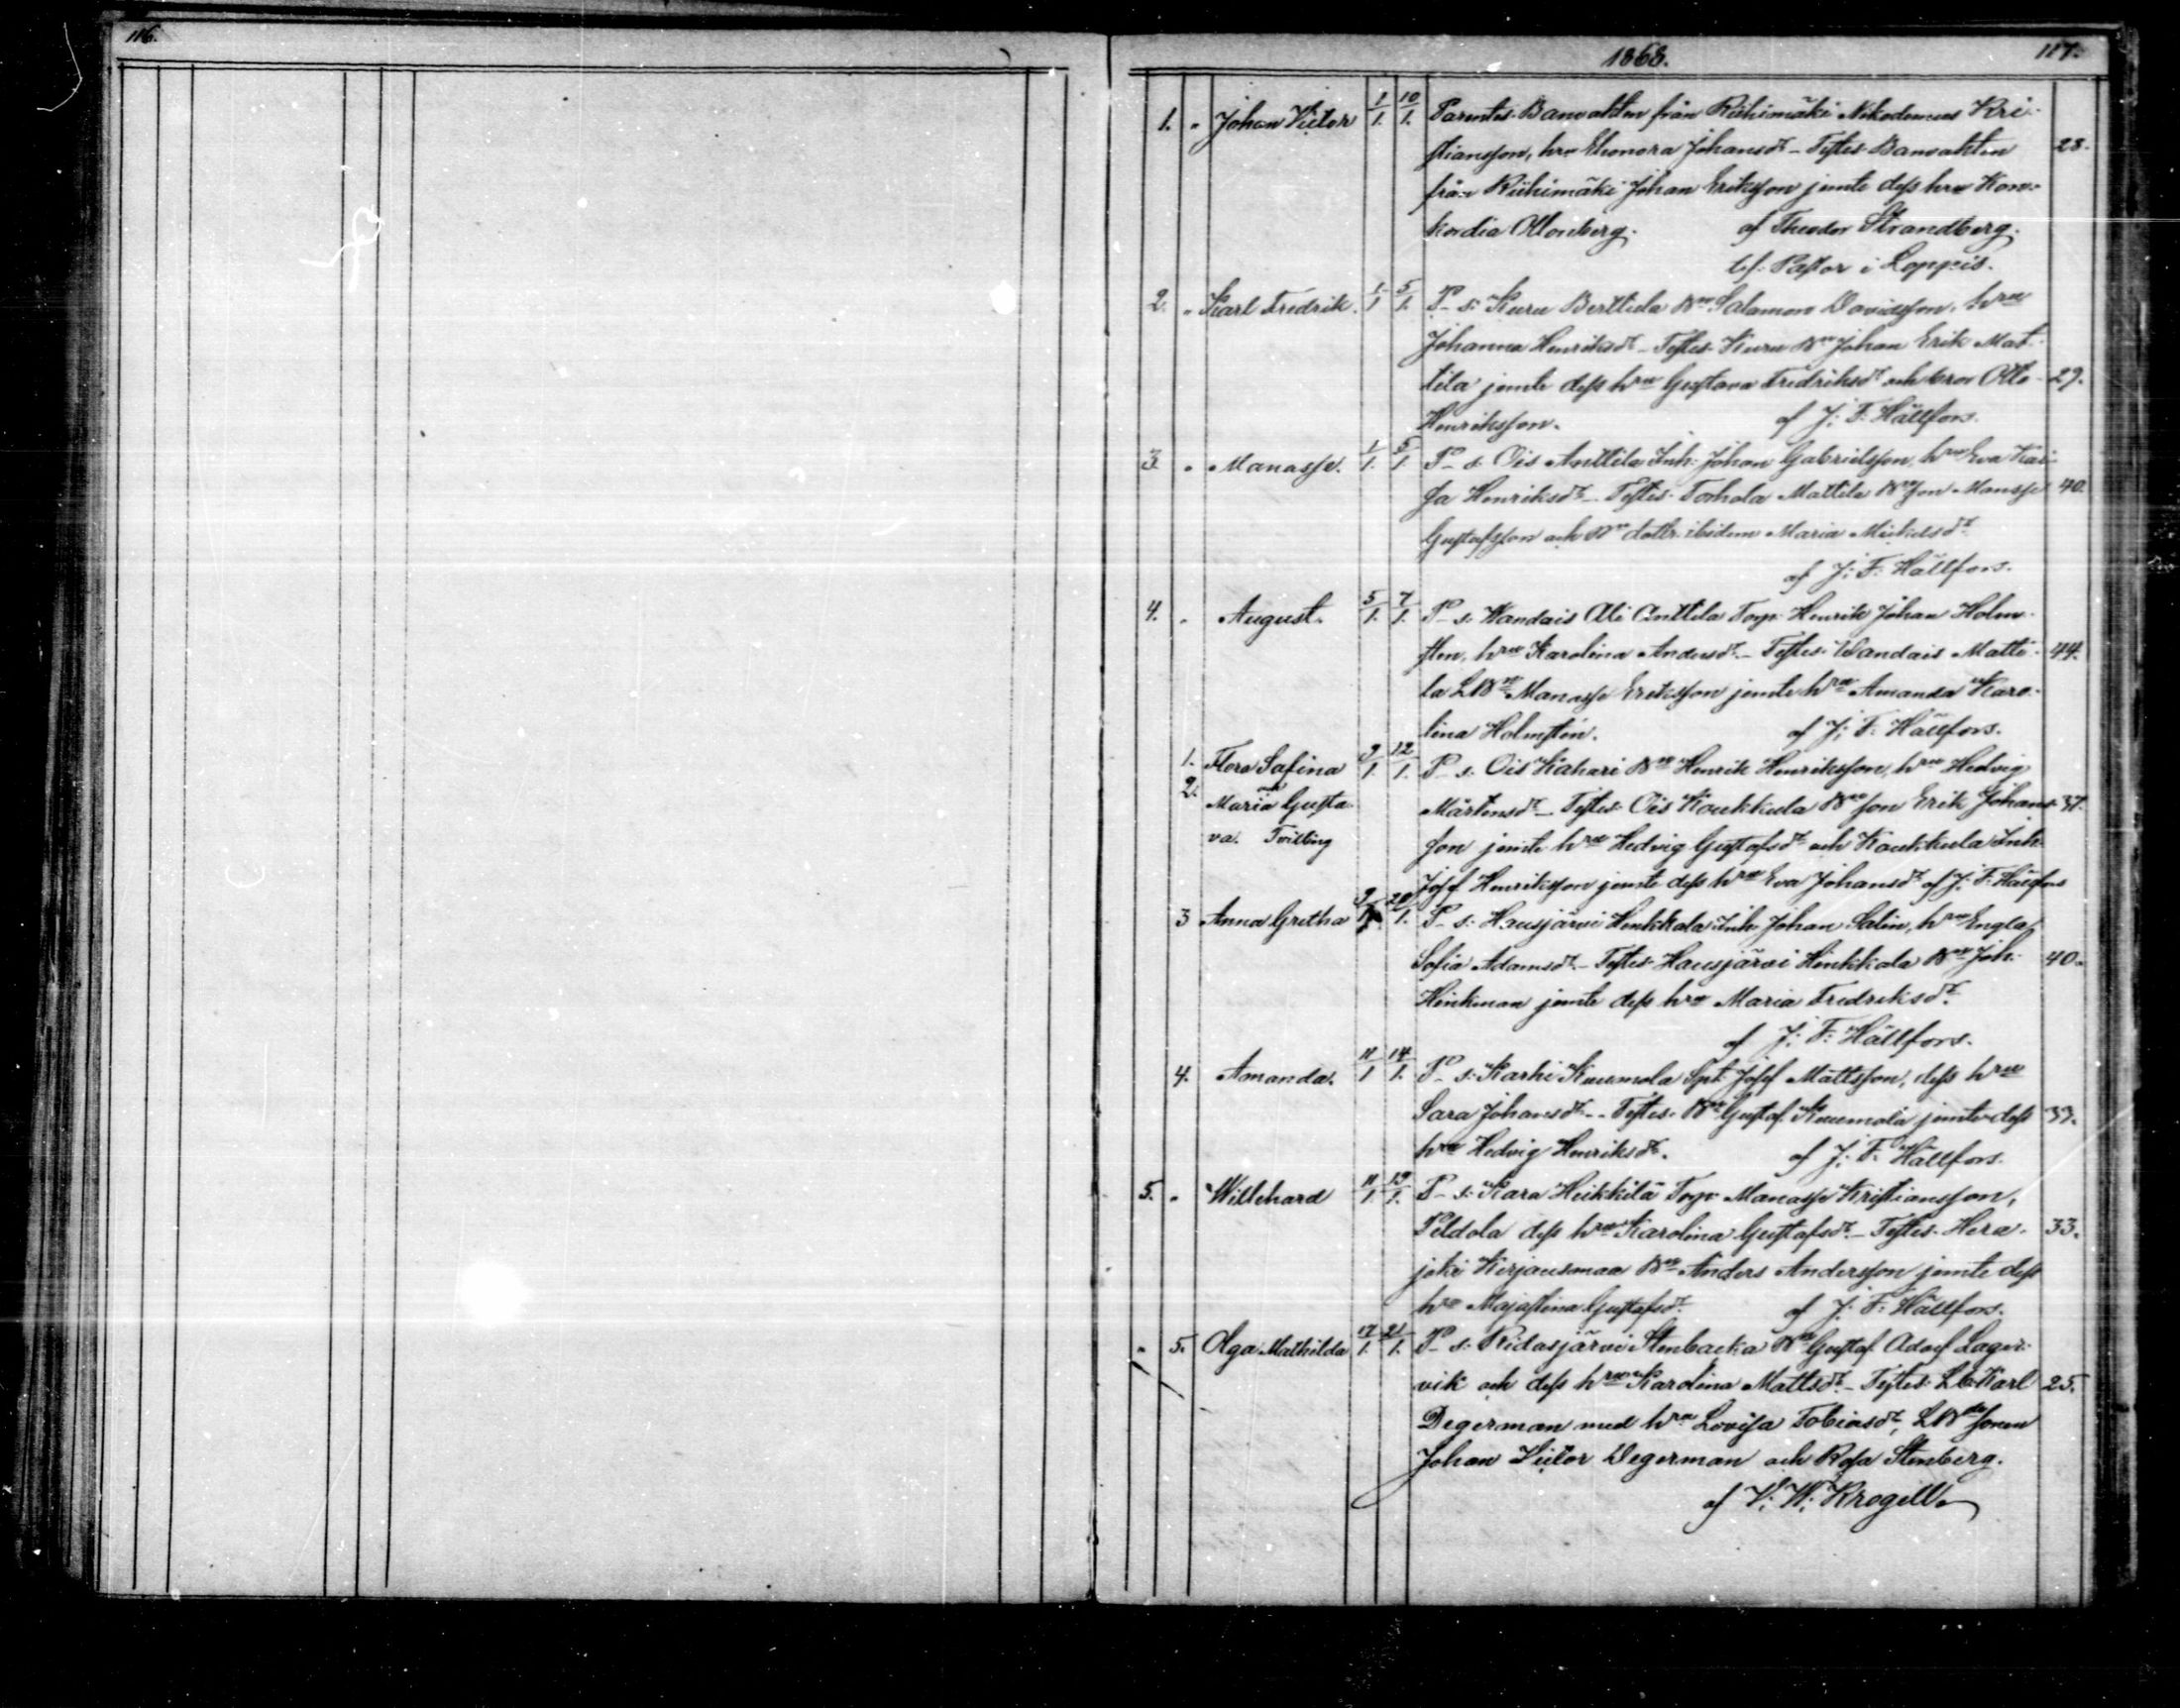 116.
1868.
117.
1. " Johan Victor 1/1. 10/1. Parentes. Banvakten från Riihimäki Nikodemus Kri-
stiansson, hru Eleonora Johansdr – Testes. Banvakten 28.
från Riihimäki Johan Eriksson jemte dess hru Kon-
kordia Ollonberg. af Theodor Strandberg.
tf. Pastor i Loppis.
2. " Karl Fredrik. 1/1 5/1. P_s: Kuru Berttula Bn Salomon Davidsson, hru
Johanna Henriksdr – Testes. Kuru Bn Johan Erik Mat-
tila jemte dess hru Gustava Fredriksdr och bror Otto 29.
Henriksson. af J: F: Hällfors.
3. " Manasse. 1/1. 5/1. P_s. Ois Anttila Inh. Johan Gabrielsson, hru Eva Kai-
sa Henriksdr – Testes. Torhola Mattila Bn son Manasse 40.
Gustafsson och Bn dottr. ibidem Maria Mickelsdr
af J: F: Hällfors.
4. " August. 5/1. 7/1. P_s. Wandais Ali Anttila Torp. Henrik Johan Holm-
sten, hru Karolina Andersdr – Testes. Wandais Matti- 44.
la LBn Manasse Eriksson jemte hru Amanda Karo-
lina Holmstén. af J: F: Hällfors.
1. Flora Safina 9/1. 12/1. P_s. Ois Kahari Bn Henrik Henriksson, hru Hedvig
2. Maria Gusta- Mårtensdr – Testes. Ois Koukkula Bn son Erik Johans- 37.
va. Tvilling son jemte hru Hedvig Gustafsdr och Koukkula Inh.
Josef Henriksson jemte dess hru Eva Johansdr af J: F: Hällfors
3 Anna Gretha 9/1. 20/1. P_s. Hausjärvi Hinkkala Inh. Johan Salin, hru Engla
Sofia Adamsdr – Testes. Hausjärvi Hinkkala Bn Joh. 40.
Hinkman jemte dess hru Maria Fredriksdr.
af J: F: Hällfors.
4. Amanda. 11/1 14/1. P_s. Karhi Kuumola Spt. Josef Mattsson, dess hru
Sara Johansdr – Testes. Bn Gustaf Kuumola jemte dess 33.
hru Hedvig Henriksdr. af J: F: Hällfors.
5. " Willehard 11/1. 19/1. P_s. Kara Heikkilä Torp. Manasse Kristiansson,
Peldola dess hru Karolina Gustafsdr – Testes. Hera- 33.
joki Kirjausmaa Bn Anders Andersson jemte dess
hru Majastina Gustafsdr. af J: F: Hällfors.
" 5. Olga Mathilda 17/1. 21/1. P_s. Ridasjärvi Stenbacka Bn Gustaf Adolf Lager-
vik och dess hru Karolina Mattsdr – Testes. Karl 25.
Degerman med hru Lovisa Tobiasdr, LBdesonen
Johan Victor Degerman och Rosa Stenberg.
af V: W: Krogell